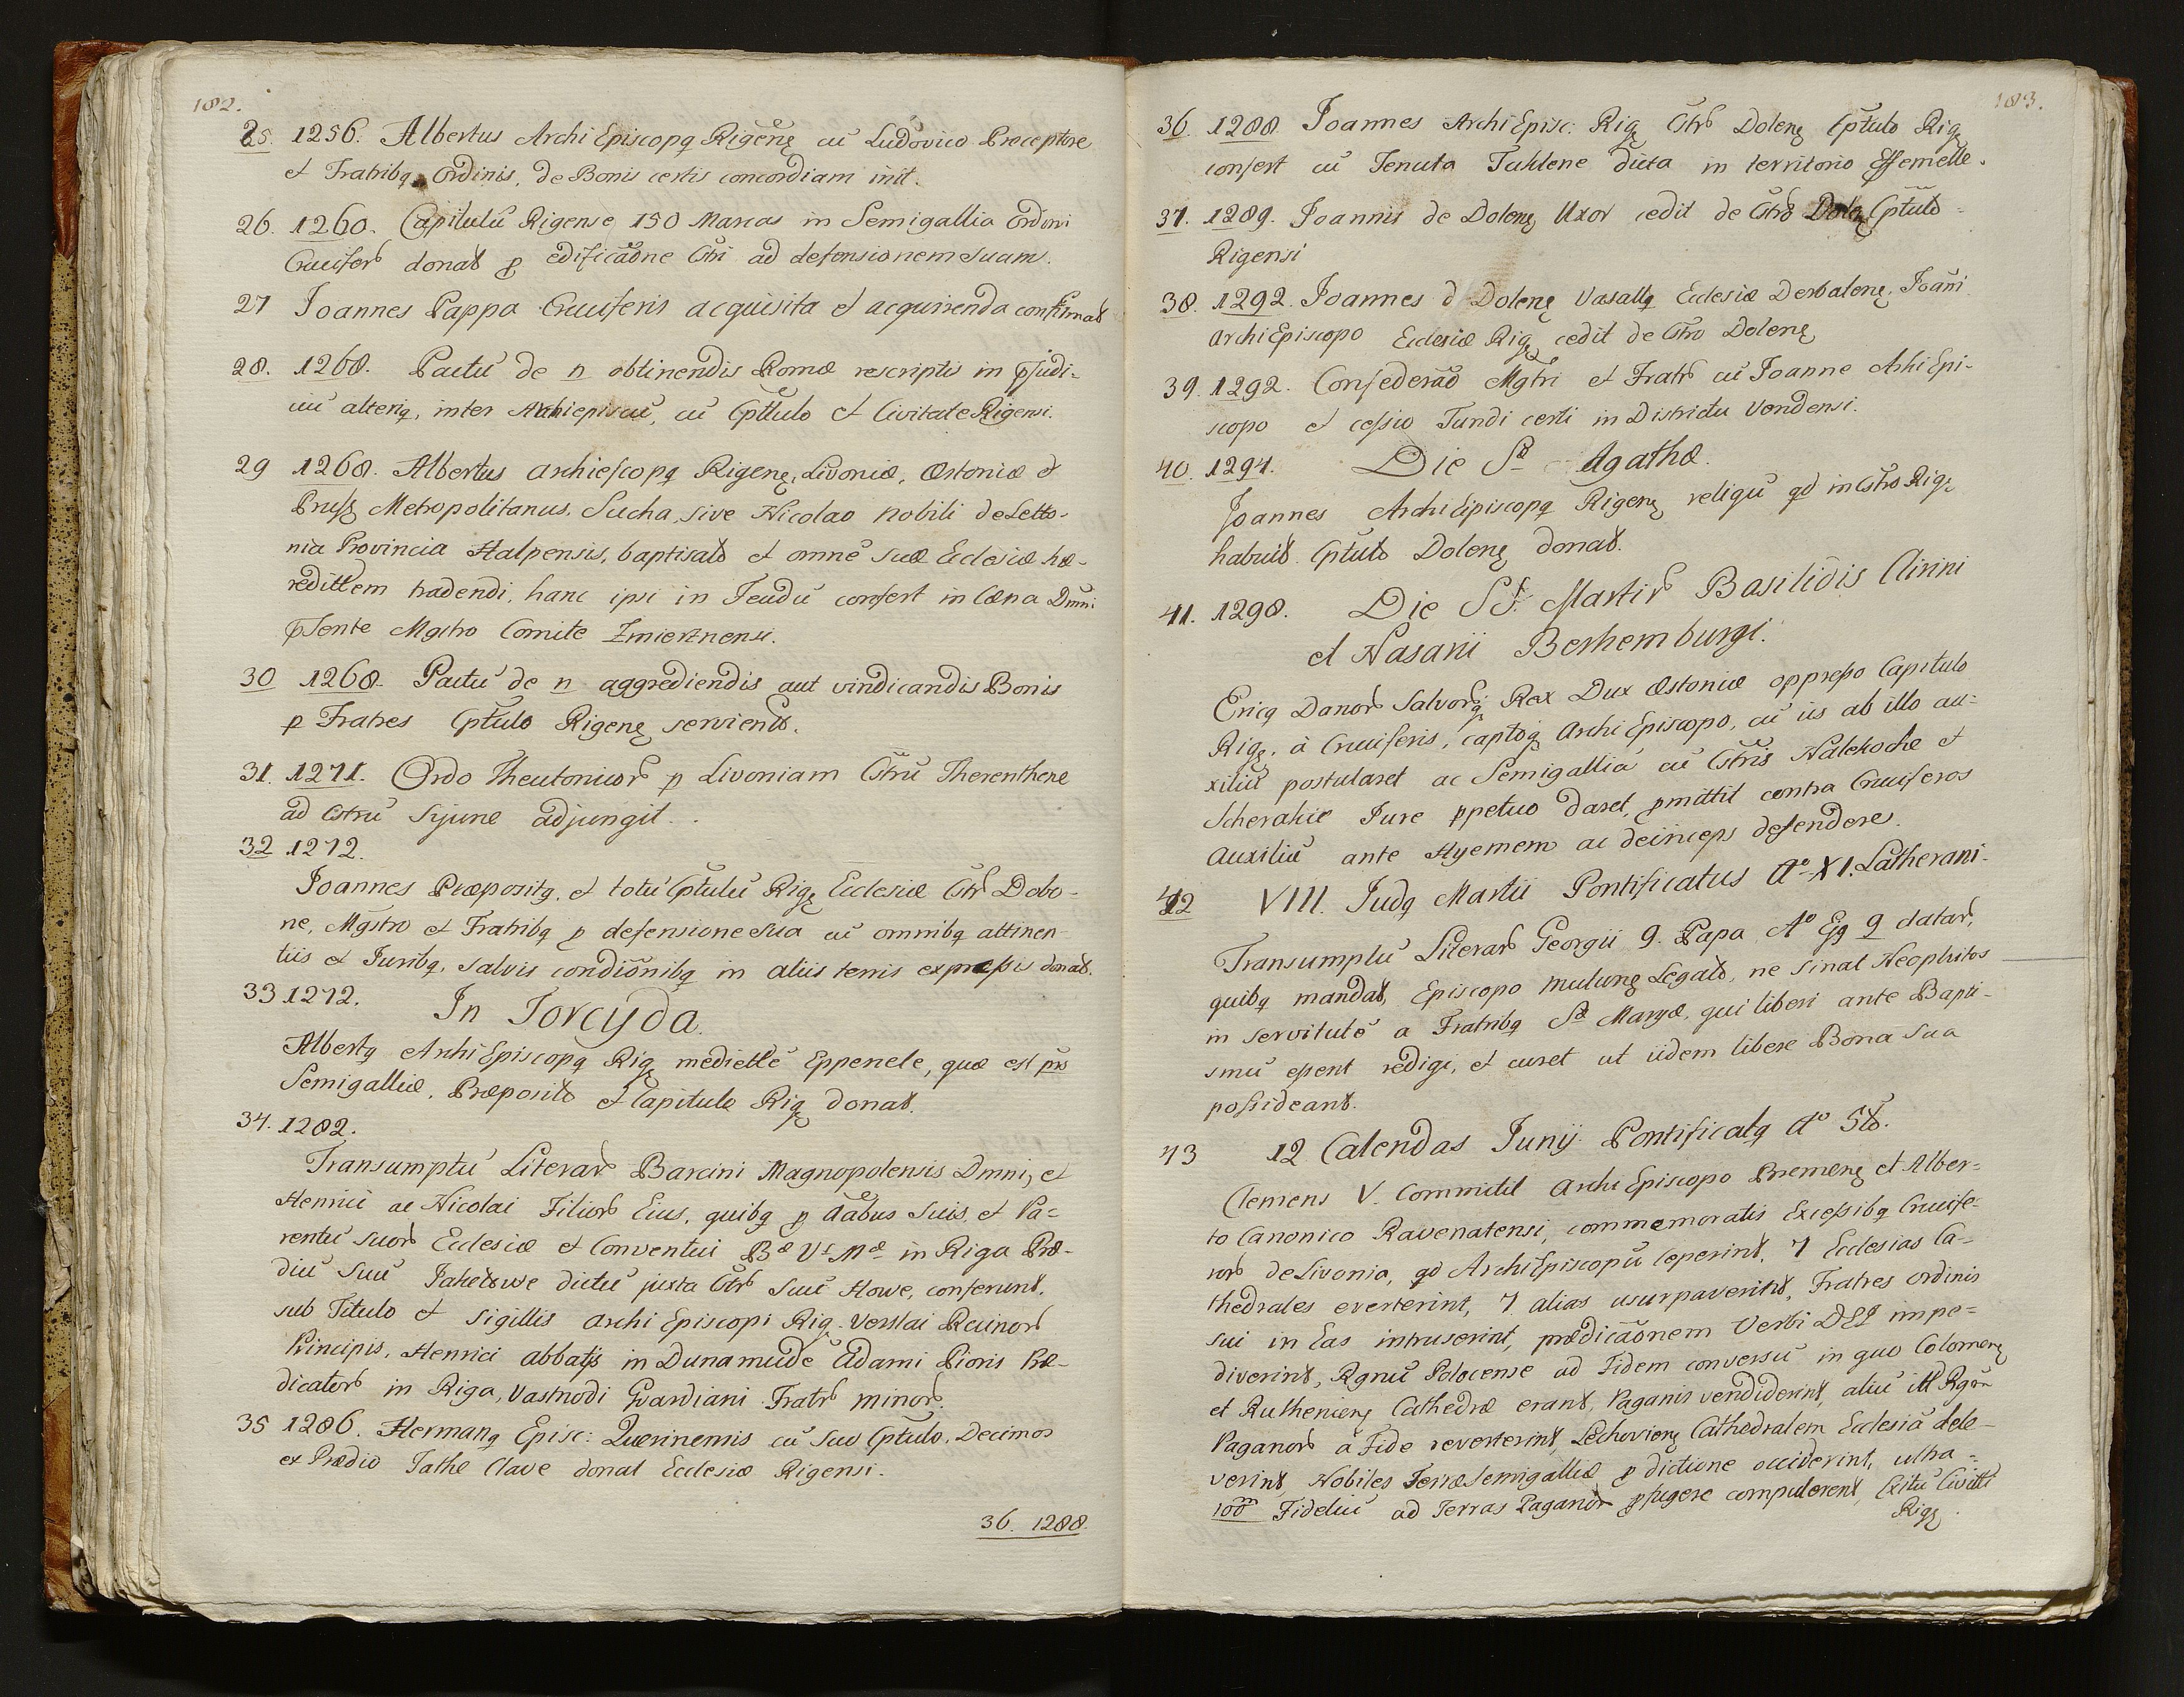 182.
25. 1256. Albertus Archi Episcopq Rigenę cū Ludovico Preceptore
et Fratribq Ordinis, de Bonis certis concordiam init.
26. 1260. Capitulū Rigense 150 Marcas in Semigallia Ordini
Crucifer donat p edificaōne Cstri ad defensionem suam.
27 Joannes Pappa Cruciferis acquisita et acquirenda confirmat
28. 1268. Pactū de n obtinendis Romæ rescriptis in pjudi-
ciū alteriq, inter Archiepiscū, cū Cptulo et Civitate Rigensi.
29 1268. Albertus archiescopq Rigenę, Livoniæ, Æstoniæ et
Prussę Metropolitanus, Sucha, sive Nicolao nobili de Letto-
nia Provincia Halpensis, baptisato et omnē suæ Ecclesiæ hæ-
redittem tradendi, hanc ipsi in Feudū confert in Cæna Dmni
psente Mgstro Comite Zmierznensi.
30 1268. Pactū de n aggrediendis aut vindicandis Bonis
p Fratres Cptulo Rigenę servient.
31. 1271. Ordo Theutonicor p Livoniam Cstrū Therenthene
ad Cstrū Syjune adjungit.
32 1272.
Joannes Præpositq, et totū Cptulū Rigę Ecclesiæ Cstr Dobo-
ne, Mgstro et Fratribq p defensione sua cū omnibq attinen-
tiis et Juribq, salvis condiōnibq in aliis terris expressis donat.
33 1272. In Torcyda.
Albertq Archi Episcopq Rigę medietlē Eppenele, quæ est prs
Semigalliæ, Præposito et Capitulo Rigę donat.
34. 1282.
Transumptū Literar Barcini Magnopolensis Dmni, et
Henrici ac Nicolai Filior Eius, quibq p āābus suis, et Pa-
rentū suor Ecclesiæ et Conventui Bæ Vs Mæ in Riga Præ-
diū suū Jakelswe dictū juxta Cstr suū Howe, conferunt,
sub Titulo et Sigillis Archi Episcopi Rig. Verslai Rcinor
Principis, Henrici abbatis in Dunamunde Adami Prioris Præ-
dicator in Riga, Vastnodi Gvardiani Fratr minor.
35 1286. Hermanq Episc: Zuerinensis cū suo Cptulo, Decimos
ex Prædio Jathe Clave donat Ecclesiæ Rigensi.
36. 1288.
183.
36. 1288. Joannes Archi Episc: Rigę Cstr Dolenę Cptulo Rigę
confert cū Tenuta Tuklene dicta in territorio Essemelle.
37. 1289. Joannis de Dolenę Uxor cedit de Cstro Dolenę Cptulo
Rigensi
38. 1292. Joannes d Dolenę Vasallq Ecclesiæ Derbalenę, Joāni
Archi Episcopo Ecclesiæ Rigę cedit de Cstro Dolenę
39. 1292. Confederāō Mgtri et Fratr cū Joanne Arhi Epi-
scopo et cessio Fundi certi in Districtu Vendensi.
40. 1294. Die Sæ Agathæ.
Joannes Archi Episcopq Rigenę religū qd in Cstro Rigę
habuit Cptulo Dolenę donat.
41. 1298. Die SS. Martir Basilidis Cirini
et Nasarii Berhemburgi.
Ericq Danor Salvorq Rex Dux Æstoniæ oppresso Capitulo
Rigę, à Cruciferis, captoq Archi Episcopo, cū iis ab illo au-
xiliū postularet ac Semigalliā cū Cstris Nalekoche et
Scherakie Jure ppetuo daret, pmittit contra Cruciferos
auxiliū ante Hyemem ac deinceps defendere.
42 VIII. Judq Martii Pontificatus Ao XI. Latherani
Transumptū Literar Georgii 9. Papa Ao Ejq 9 datar,
quibq mandat, Episcopo mulunę Legato, ne sinat Neophitos
in servitutē a Fratribq Sæ Maryæ, qui liberi ante Bapti-
smū essent redigi, et curet ut iidem libere Bona sua
possideant.
43 12 Calendas Junij Pontificatq Ao 5to.
Clemens V. Committit Archi Episcopo Bremenę et Alber-
to Canonico Ravenatensi, commemoratis Excessibq Crucife-
ror de Livonia, qd Archi Episcopū ceperint, 7 Ecclesias Ca-
thedrales everterint, 7 alias usurpaverint, Fratres Ordinis
sui in Eas intruserint, prædicaōnem Verbi DEI impe-
diverint, Rgnū Polocense ad Fidem conversū in quo Colomenę
et Ruthenienę Cathedræ erant, Paganis vendiderint, aliū itl Rgōn
Paganor à Fide reverterint, Lechovienę Cathedralem Ecclesiā dele-
verint, Nobiles Terræ Semigalliæ p dictione occiderint, ultra
100m Fideliū ad Terras Paganor pfugere compulerent, Exitū Civitti
Rigę